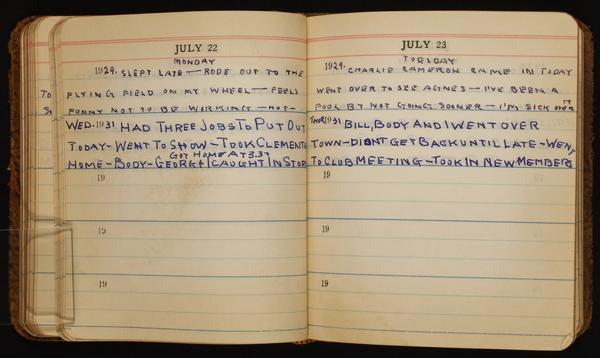 JULY 22
MONDAY
1929. SLEPT LATE — RODE OUT TO THE
FLYING FIELD ON MY WHEEL — FEELS
FUNNY NOT TO BE WORKING — HOT —
WED. 1931 HAD THREE JOBS TO PUT OUT
TODAY - WENT TO SHOW - TOOK CLEMENTS
GOT HOME AT 3.37
HOME - BODY - GEORGE I CAUGHT IN STOR
19
19
19
TO
JULY 23
TUESDAY
1929. CHARLIE CAMERON CAME IN TODAY
WENT OVER TO SEE AGNES — I'VE BEEN A
FOOL BY NOT GOING SOONER — I'M SICK OVER IT
THUR 1931 BILL, BODY AND I WENT OVER
TOWN - DIDNT GET BACK UNTIL LATE - WENT
TO CLUB MEETING - TOOK IN NEW MEMBERS
19
19
19